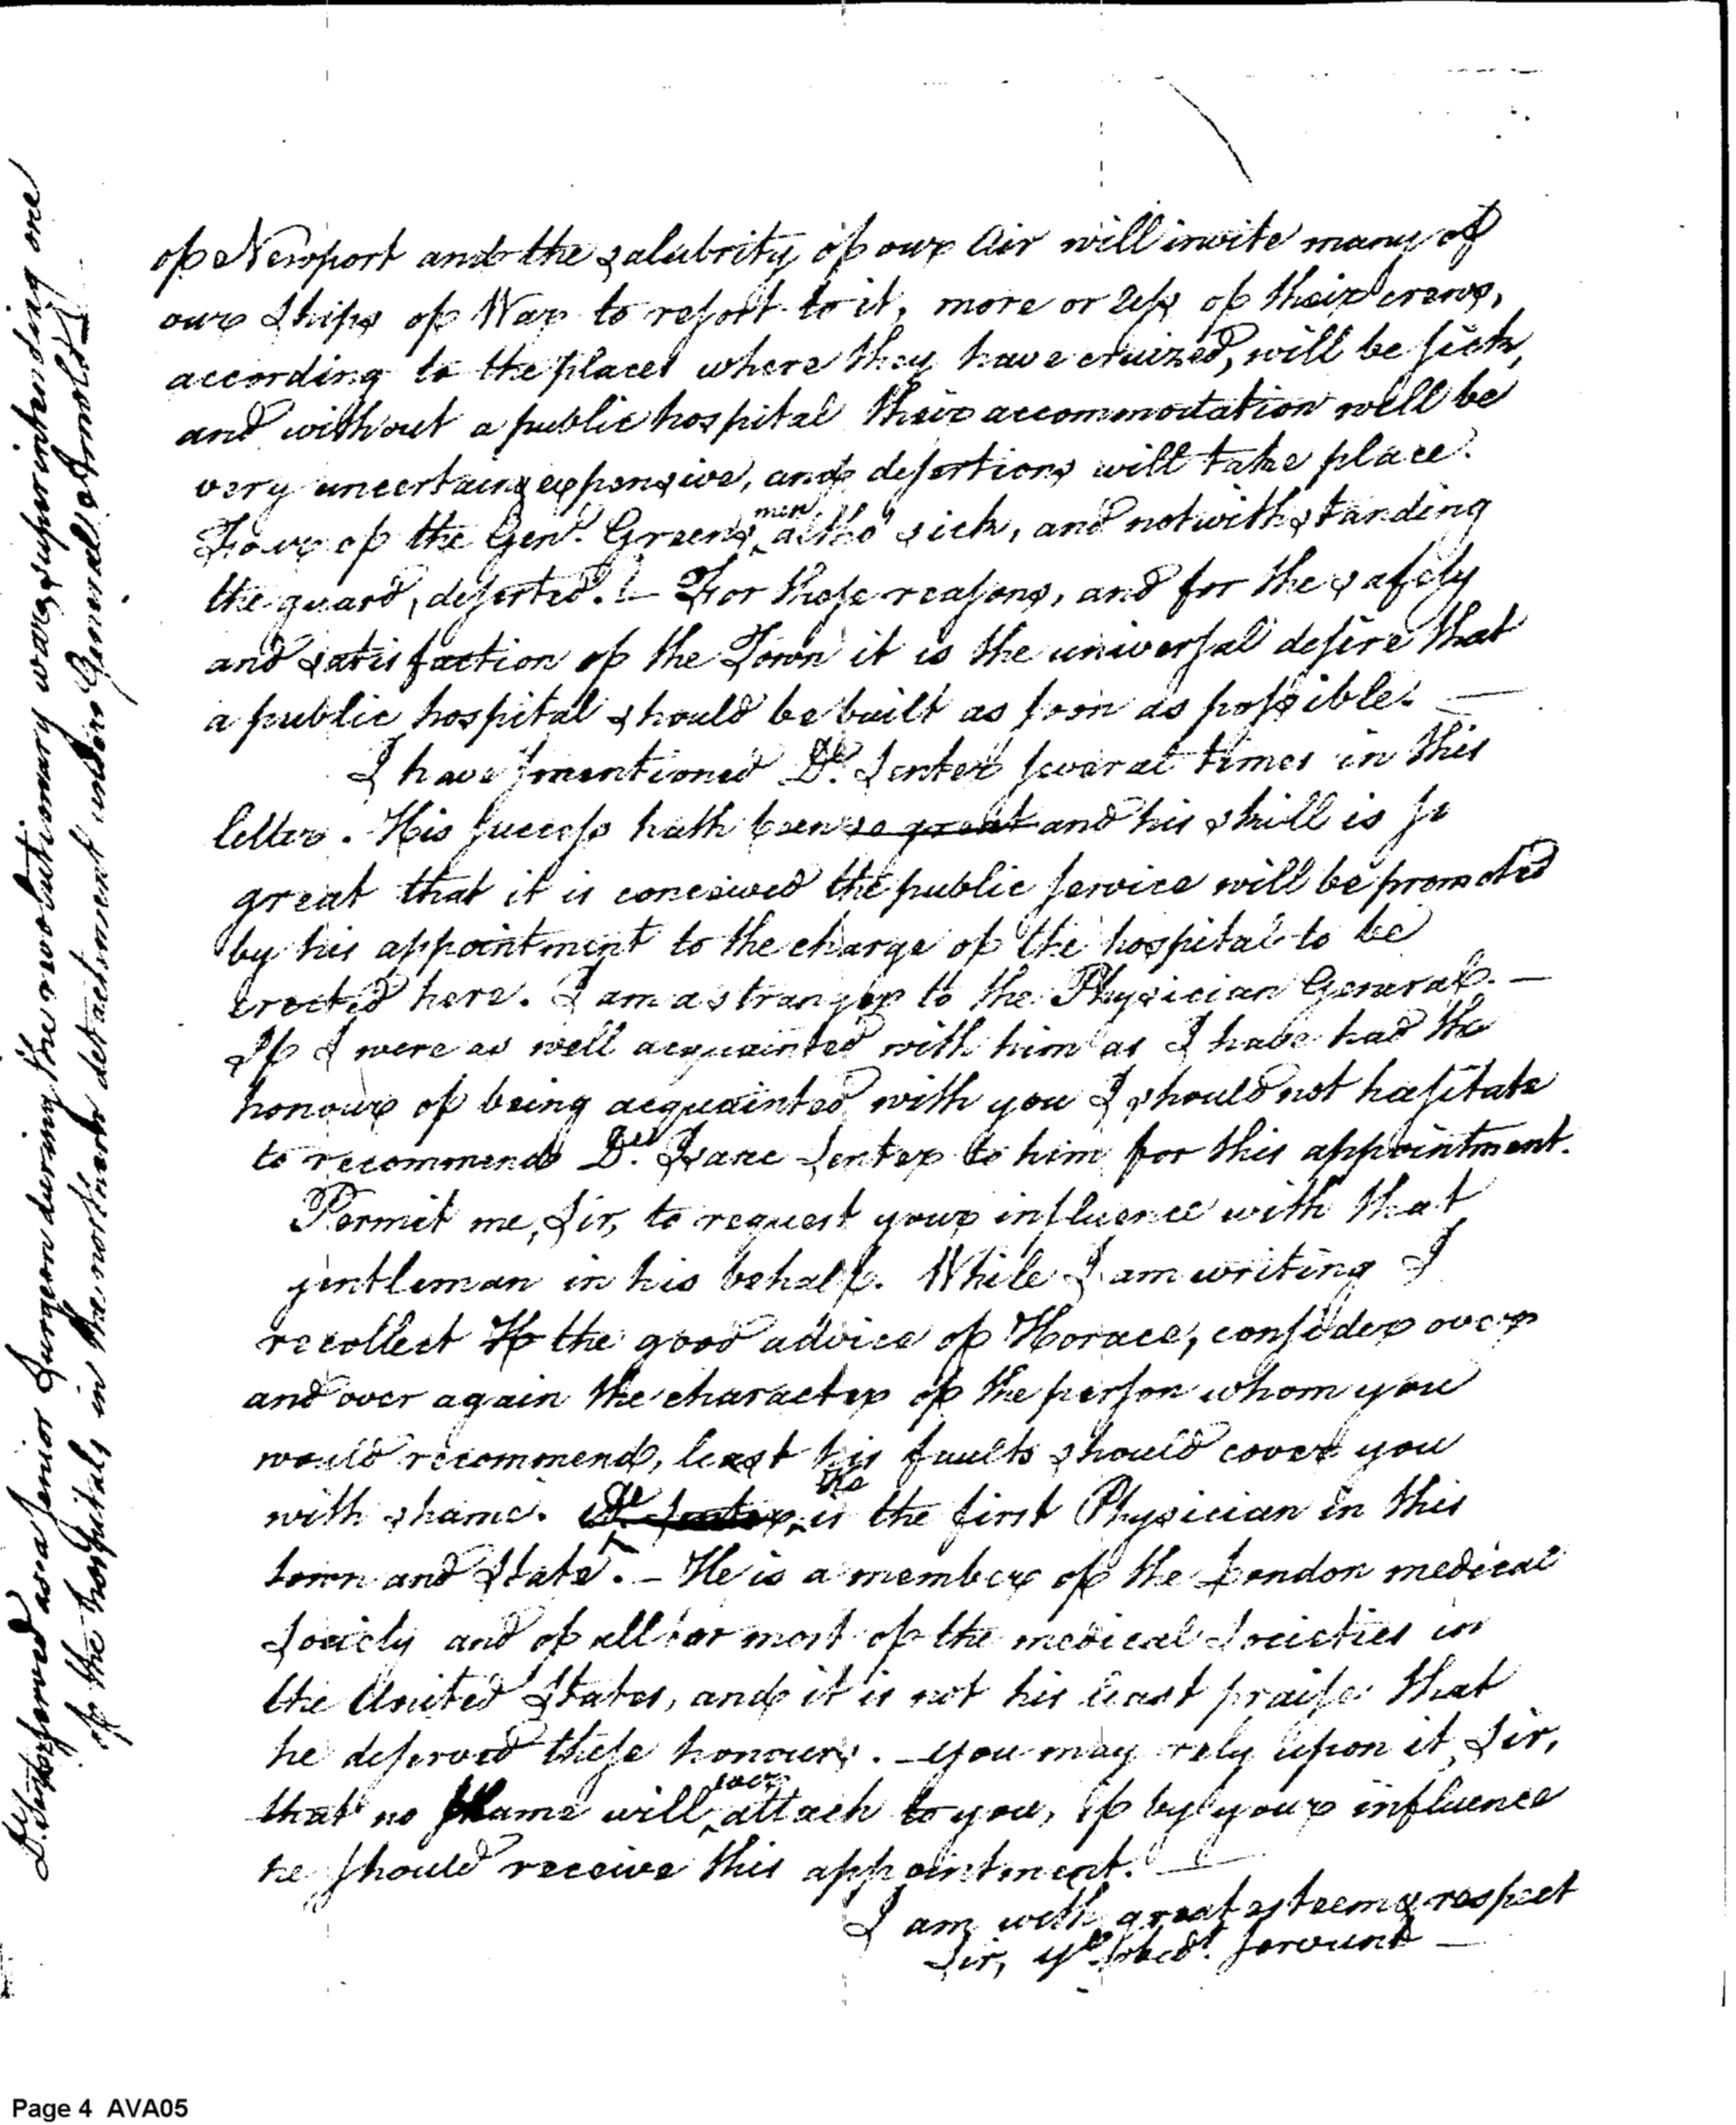 of Newport and the salubrity of our Air will invite many of
our Ships of War to resort to it, more or less of their crews,
according to the places where they have cruized, will be sick,
and without a public hospital their accommodation will be
very uncertain, expensive, and desertions will take place.
Four of the Genl. Greens men altho' sick, and notwithstanding
the guard, deserted. — For these reasons, and for the safety
and satisfaction of the Town it is the universal desire that
a public hospital should be built as soon as possible. —
I have mentioned Dr. Senter several times in this
letter. His success hath been so great and his skill is so
great that it is conceived the public service will be promoted
by his appointment to the charge of the hospital to be
erected here. I am a stranger to the Physician General. —
If I were as well acquainted with him as I have had the
honour of being acquainted with you I should not hesitate
to recommend Dr. Isaac Senter to him for this appointment.
Permit me, Sir, to request your influence with that
gentleman in his behalf. While I am writing I
recollect the good advice of Horace, consider over
and over again the character of the person whom you
would recommend, least his faults should cover you
with shame. Dr Senter is the first Physician in this
town and State. — He is a member of the London medical
Society and of all or most of the medical Societies in
the United States, and it is not his least praise that
he deserved these honours. — You may rely upon it, Sir,
that no shame will ever attach to you, if by your influence
he should receive this appointment. —
I am with great esteem & respect
Sir, yr. obedt. servant —
Dr. Senter served as a senior Surgeon during the revolutionary war, superintending one
of the hospitals, in the northern detachment under General Arnold
Page 4 AVA05